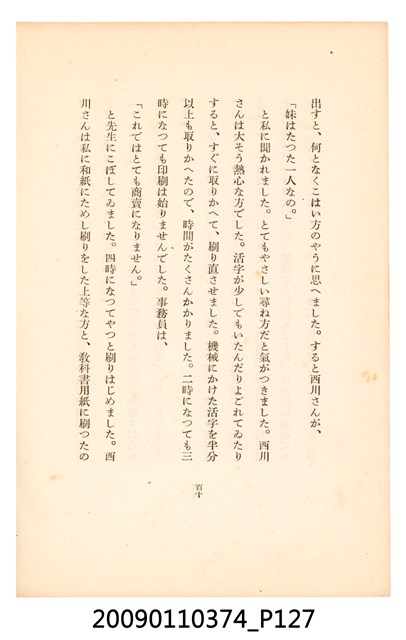 出すと、何となくこはい方のやうに思へました。すると西川さんが、
「妹はたつた一人なの。」
と私に聞かれました。とてもやさしい尋ね方だと氣がつきました。西川
さんは大そう熱心な方でした。活字が少しでもいたんだりよごれてゐたり
すると、すぐに取りかへて、刷り直させました。機械にかけた活字を半分
以上も取りかへたので、時間がたくさんかかりました。二時になつても三
時になつても印刷は始りませんでした。事務員は、
「これではとても商賣になりません。」
と先生にこぼしてゐました。四時になつてやつと刷りはじめました。西
川さんは私に和紙にためし刷りをした上等な方と、敎科書用紙に刷つたの
百十
20090110374_P127